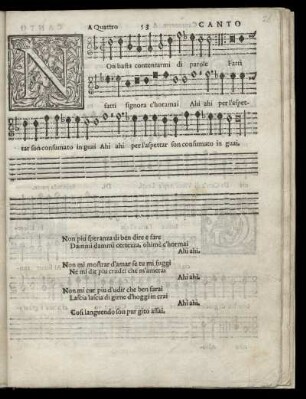 A Quattro 13 CANTO
N
On basta contentarmi di parole Fatti
fatti signora c'horamai Ahi ahi per l'aspet-
tar son consumato in guai Ahi ahi per l'aspettar son consumato in guai.
Non più speranza di ben dire e fare
Dammi dammi certezza, ohimè c'hormai
Ahi ahi.
Non mi mostrar d'amar se tu mi fuggi
Ne mi dir più crudel che m'amerai
Ahi ahi.
Non mi cur più d'udir che ben farai
Lascia lascia di girne d'hoggi in crai
Ahi ahi.
Così languendo son pur gito assai.